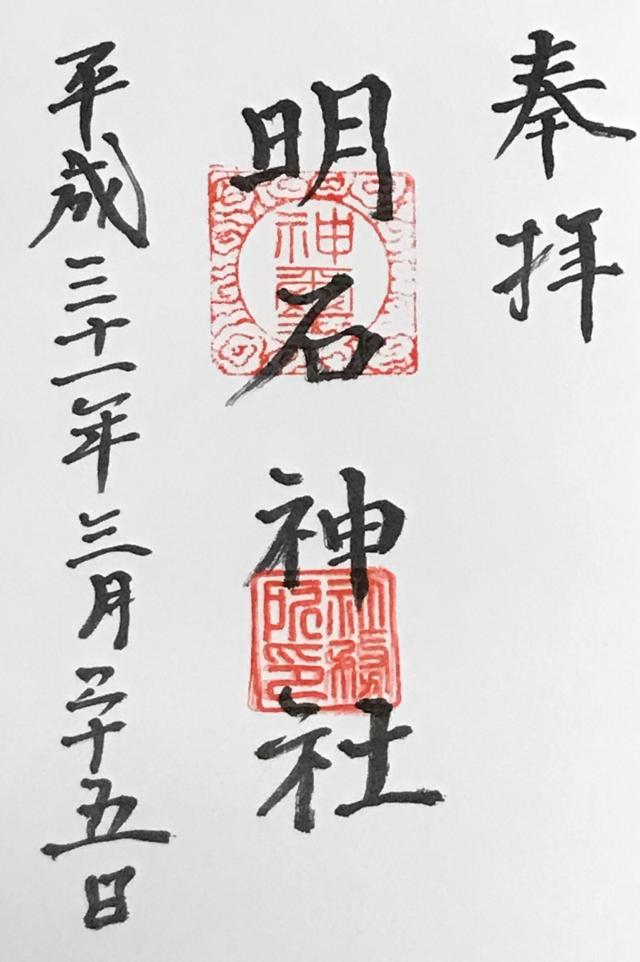 奉拝
明石神社
神璽
社務所印
平成三十一年三月二十五日